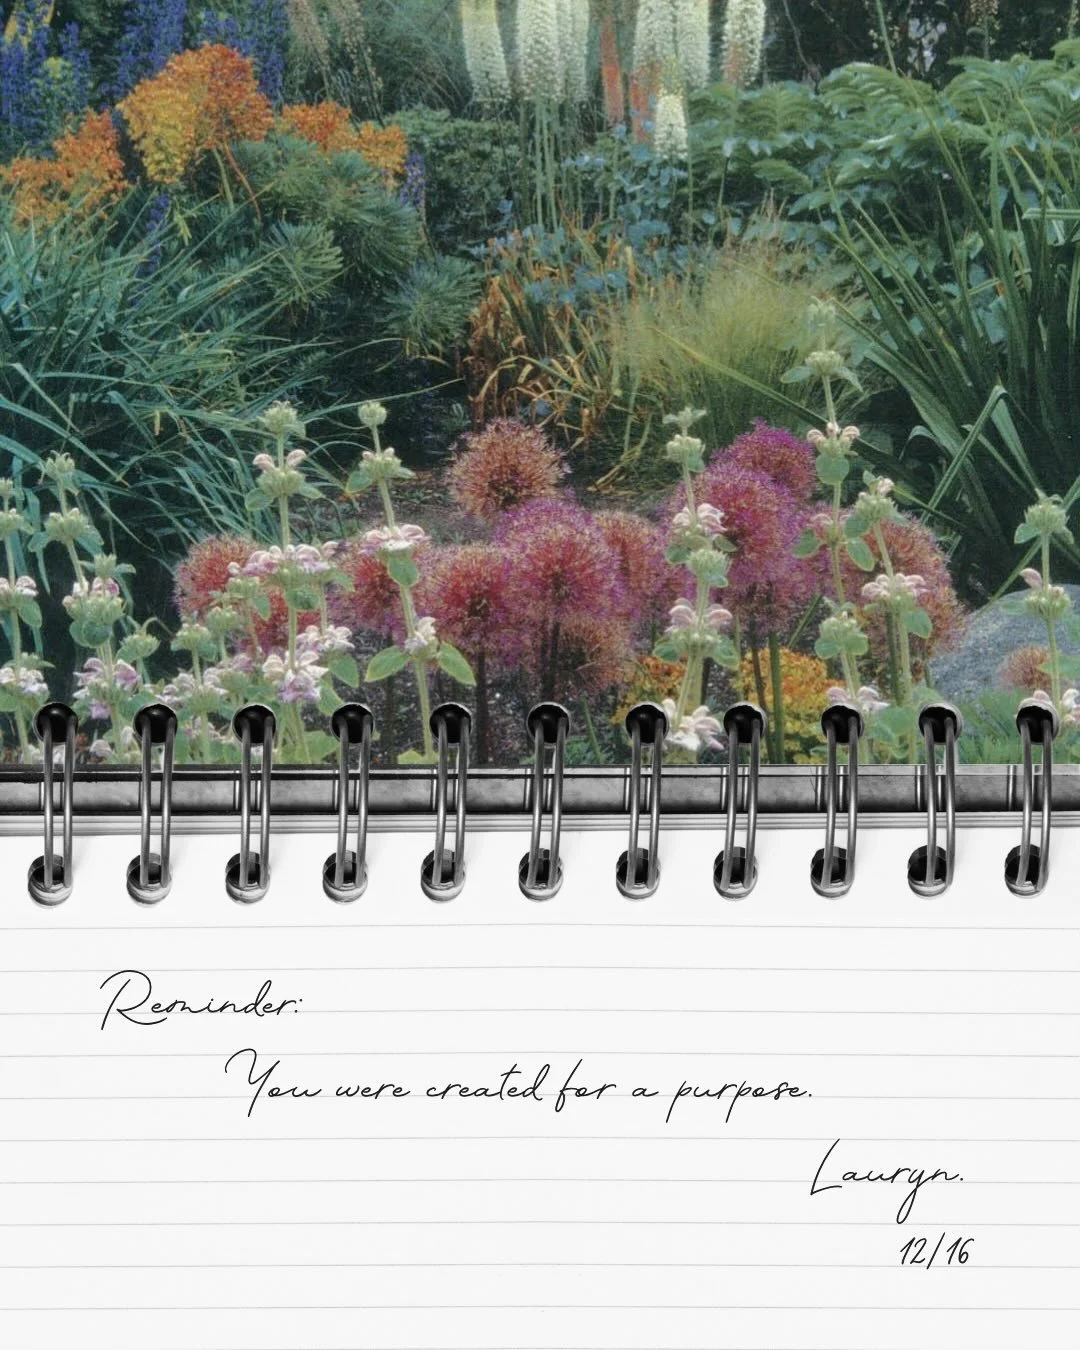 Reminder:
You were created for a purpose.
Lauryn.
12/16